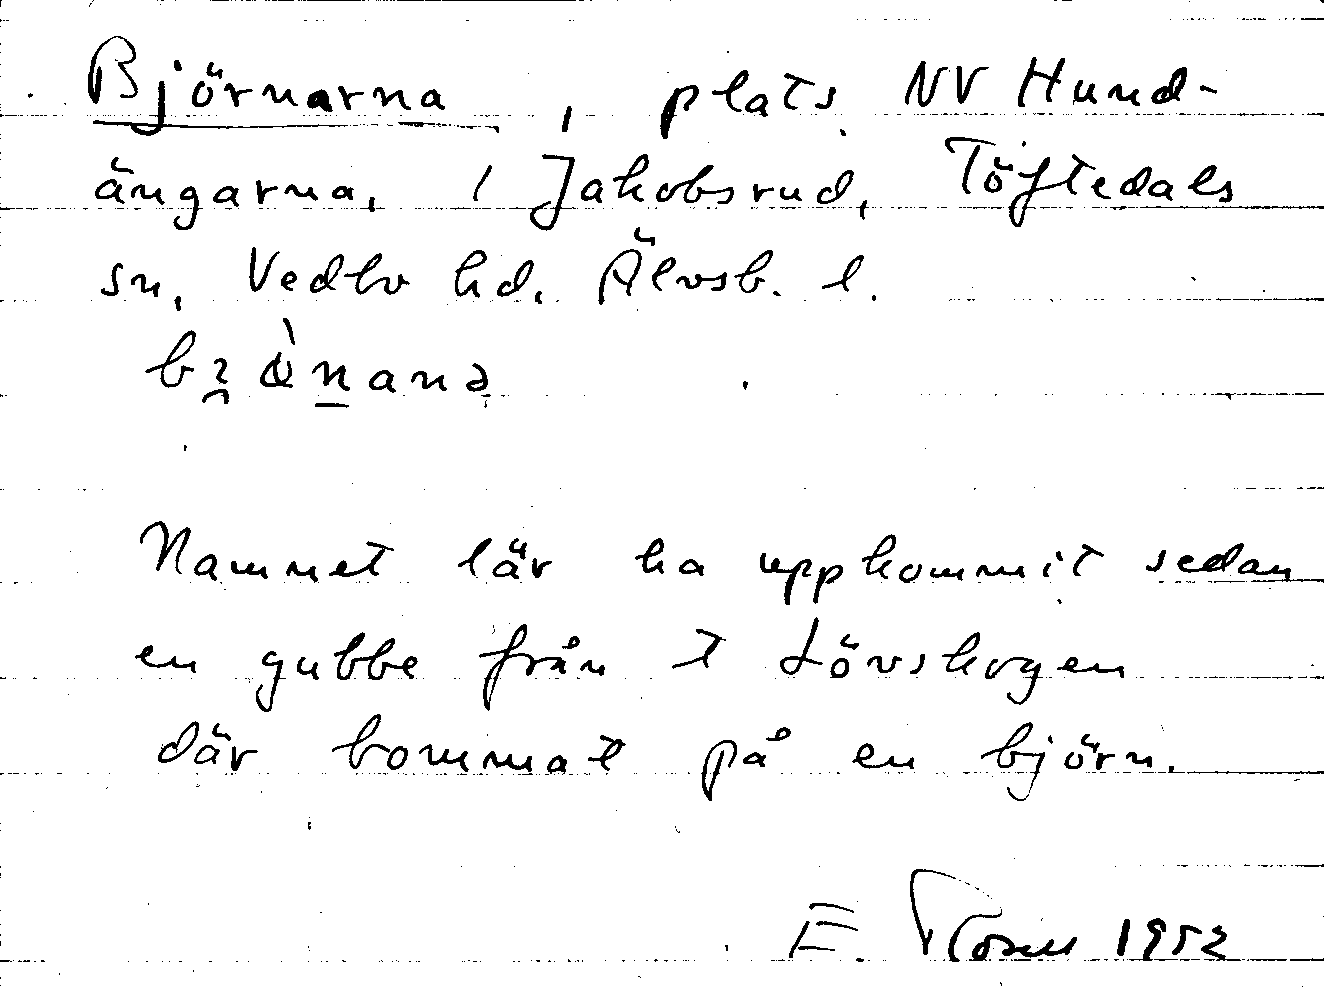 Björnarna, plats NV Hund-
ängarna, / Jakobsrud, Töftedals
sn, Vedbo hd. Älvsb. l.
Namnet lär ha uppkommit sedan
en gubbe från t Lövskogen
där bommat på en björn.
E. 1952